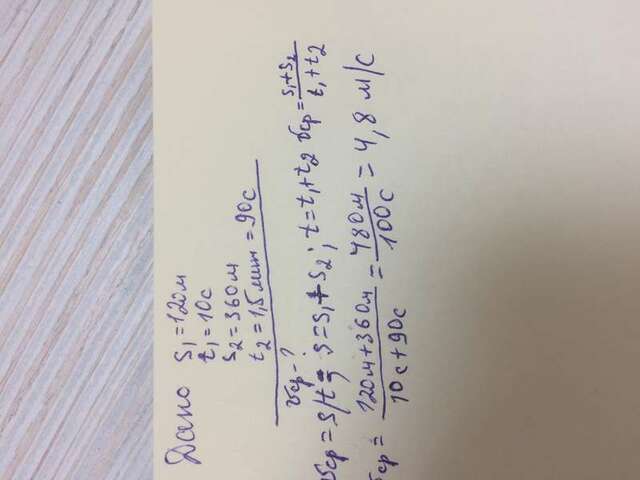 Дано S₁ = 120м
t₁ = 10с
S₂ = 360м
t₂ = 1,5мин = 90с
υср - ?
υср = S/t; S = S₁ + S₂; t = t₁ + t₂ υср = (S₁+S₂)/(t₁+t₂)
υср = (120м + 360м)/(10с + 90с) = 480м/100с = 4,8 м/с